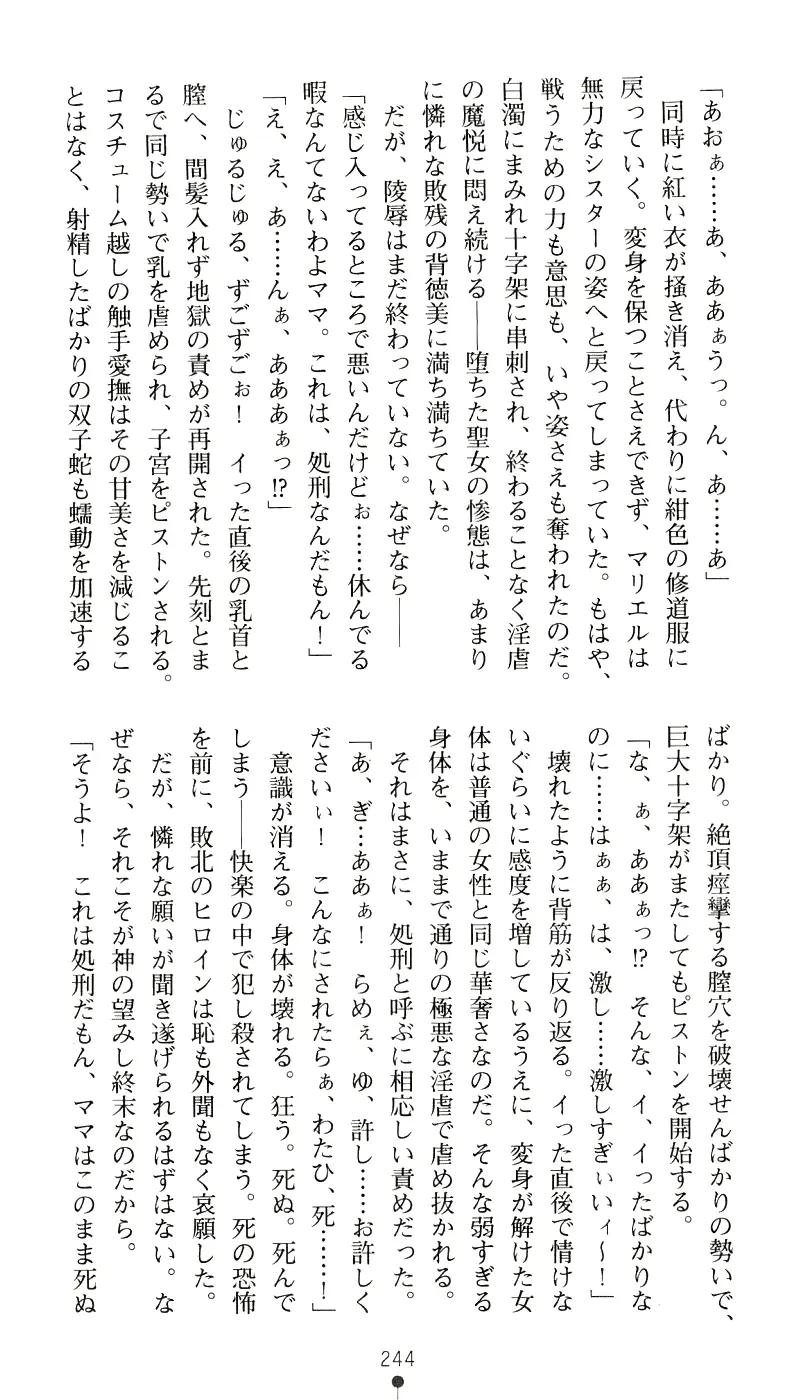 「あおぁ……あ、ああぁうっ。ん、あ……あ」
同時に紅い衣が掻き消え、代わりに紺色の修道服に
戻っていく。変身を保つことさえできず、マリエルは
無力なシスターの姿へと戻ってしまっていた。もはや、
戦うための力も意思も、いや姿さえも奪われたのだ。
白濁にまみれ十字架に串刺され、終わることなく淫虐
の魔悦に悶え続ける――堕ちた聖女の惨態は、あまり
に憐れな敗残の背徳美に満ち満ちていた。
だが、陵辱はまだ終わっていない。なぜなら――
「感じ入ってるところで悪いんだけどぉ……休んでる
暇なんてないわよママ。これは、処刑なんだもん！」
「え、え、あ……んぁ、あああぁっ!?」
じゅるじゅる、ずごずごぉ！　イった直後の乳首と
膣へ、間髪入れず地獄の責めが再開された。先刻とま
るで同じ勢いで乳を虐められ、子宮をピストンされる。
コスチューム越しの触手愛撫はその甘美さを減じるこ
とはなく、射精したばかりの双子蛇も蠕動を加速する
ばかり。絶頂痙攣する膣穴を破壊せんばかりの勢いで、
巨大十字架がまたしてもピストンを開始する。
「な、ぁ、ああぁっ!?　そんな、イ、イったばかりな
のに……はぁぁ、は、激し……激しすぎぃいィ～！」
壊れたように背筋が反り返る。イった直後で情けな
いぐらいに感度を増しているうえに、変身が解けた女
体は普通の女性と同じ華奢さなのだ。そんな弱すぎる
身体を、いままで通りの極悪な淫虐で虐め抜かれる。
それはまさに、処刑と呼ぶに相応しい責めだった。
「あ、ぎ…ああぁ！　らめぇ、ゆ、許し……お許しく
ださいぃ！　こんなにされたらぁ、わたひ、死……！」
意識が消える。身体が壊れる。狂う。死ぬ。死んで
しまう――快楽の中で犯し殺されてしまう。死の恐怖
を前に、敗北のヒロインは恥も外聞もなく哀願した。
だが、憐れな願いが聞き遂げられるはずはない。な
ぜなら、それこそが神の望みし終末なのだから。
「そうよ！　これは処刑だもん、ママはこのまま死ぬ
244